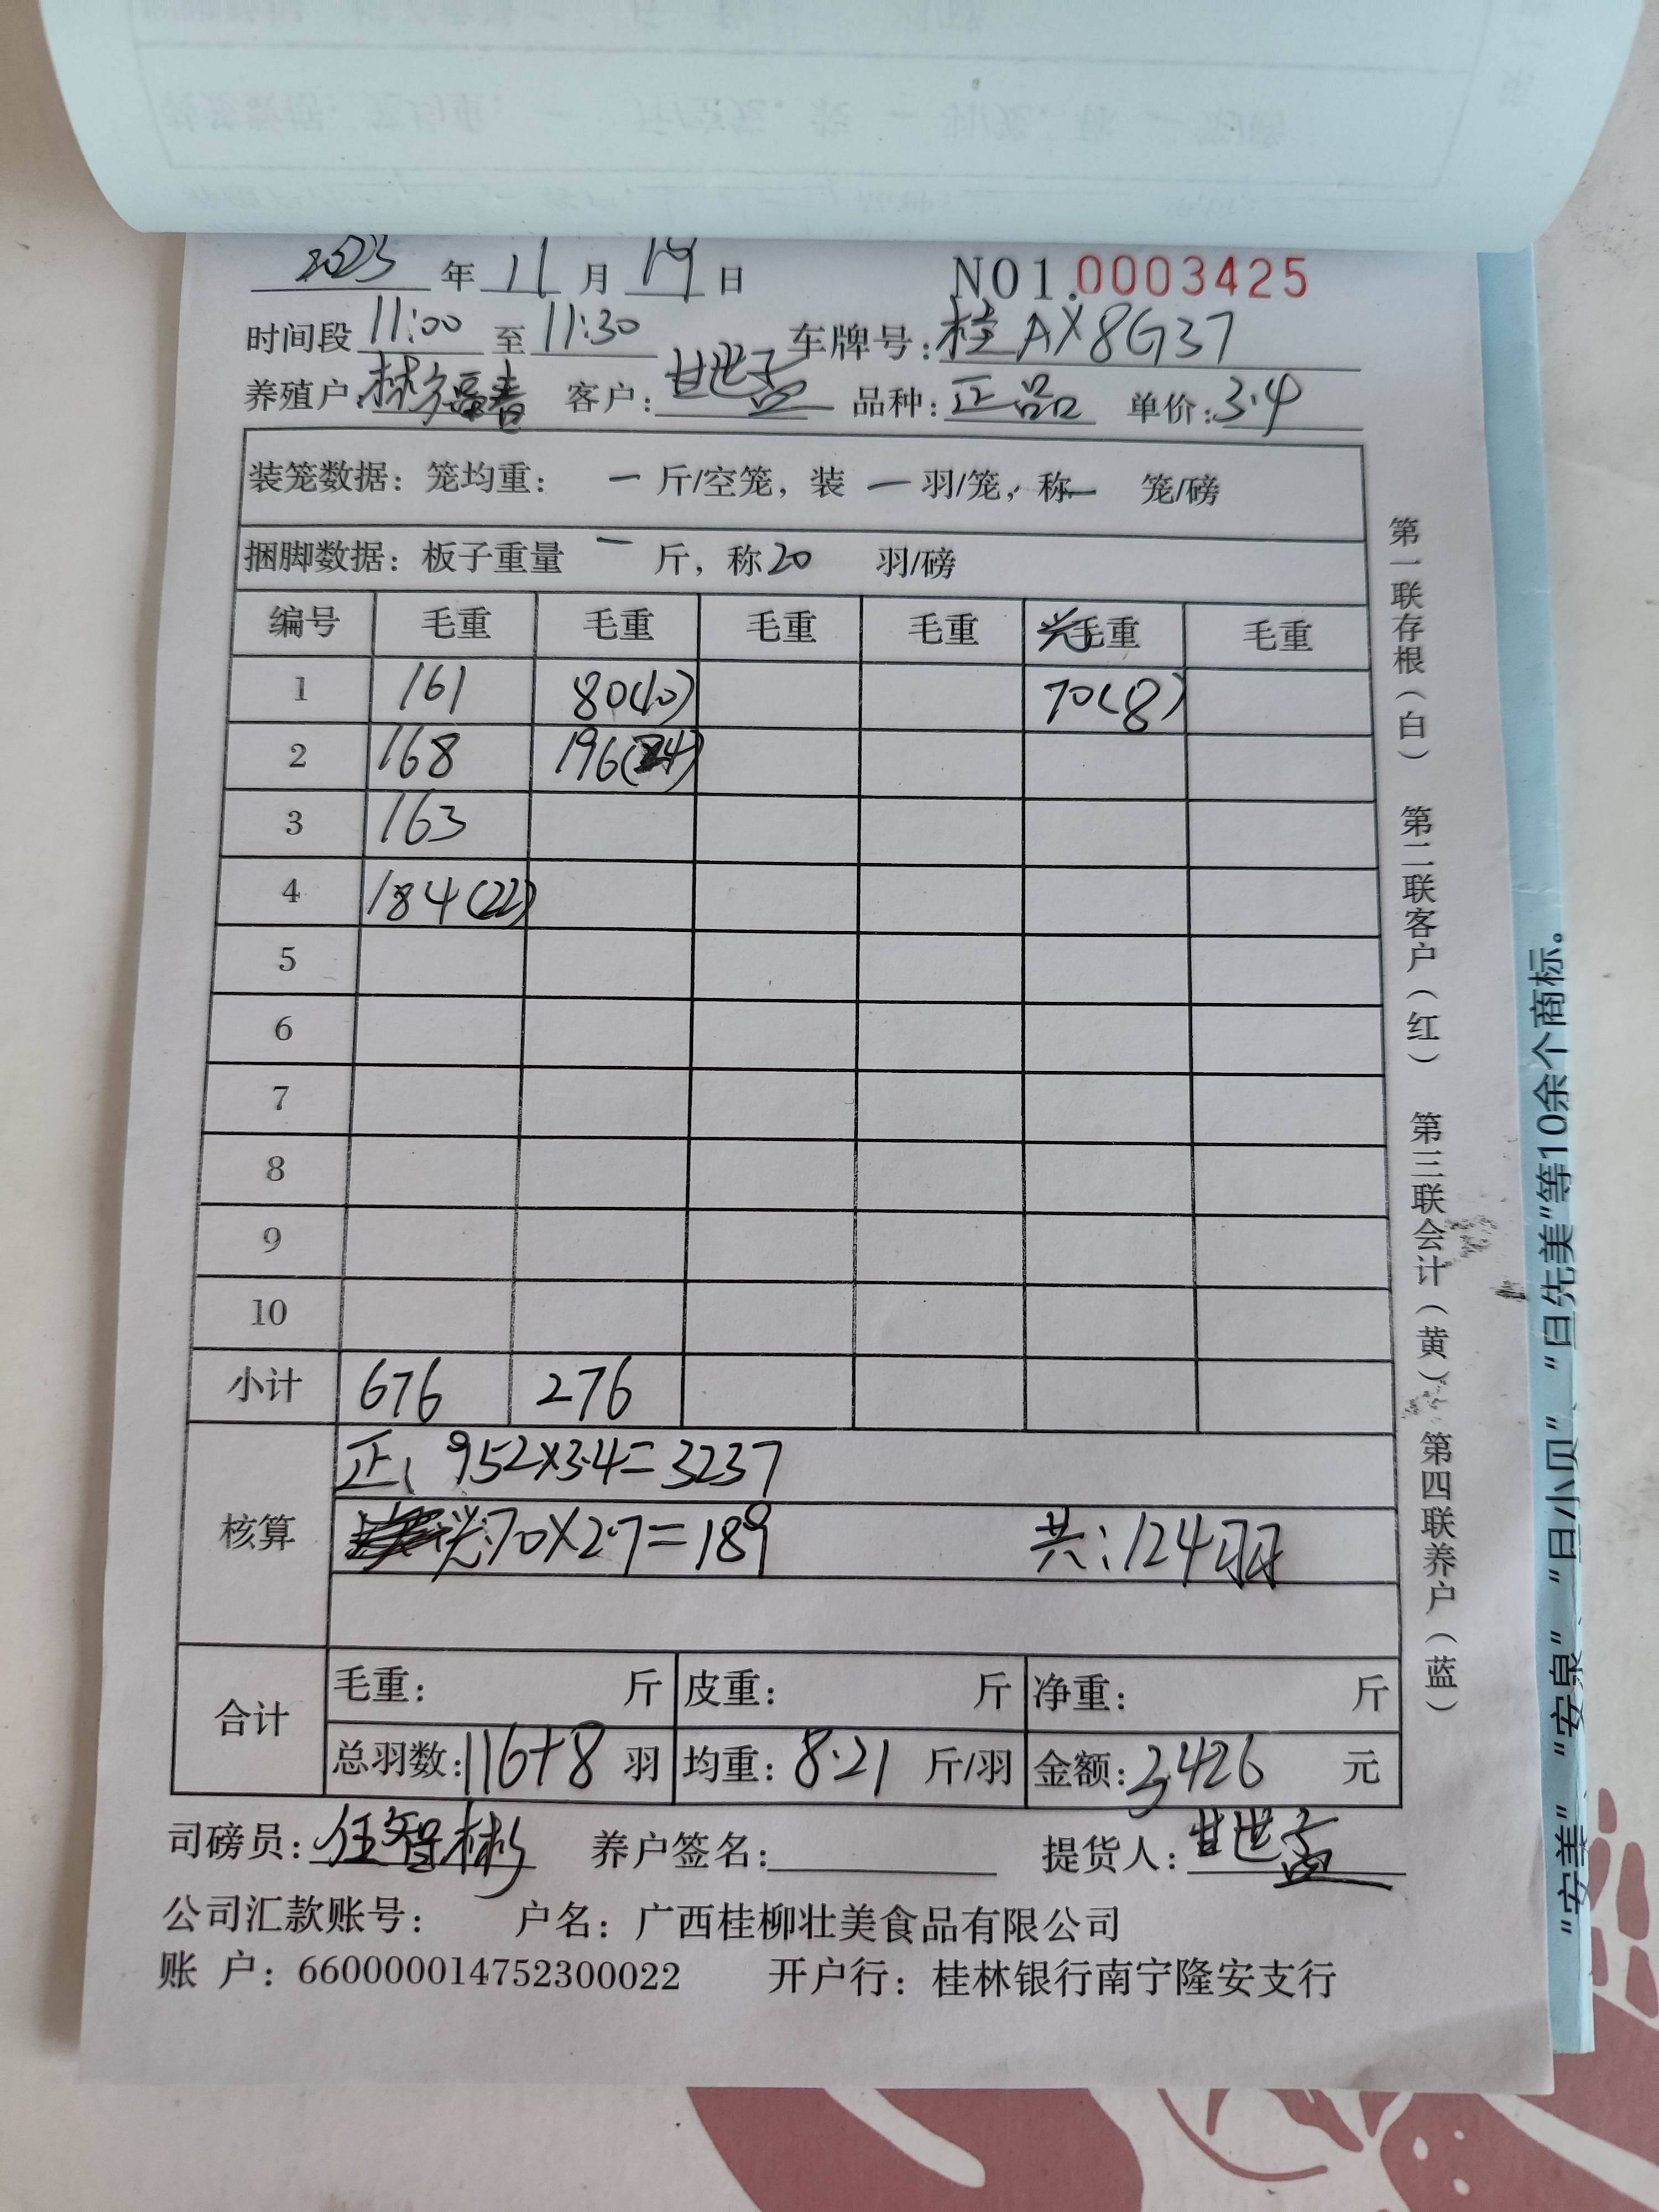 2023年11月19日 NO1.0003425
时间段11:00至11:30 车牌号:桂AX8G37
养殖户: 客户:甘世孟 品种:正品 单价:3.4
装笼数据:笼均重: 一 斤/空笼,装 一 羽/笼,称一 笼/磅
捆脚数据:板子重量 一 斤,称20 羽/磅
编号 毛重 毛重 毛重 毛重 毛重 毛重
1 161 80(10) 70(8)
2 168 196(24)
3 163
4 184(22)
5
6
7
8
9
10
小计 676 276
核算 正: 952×3.4=3237
70×2.7=189 共:124羽
合计 毛重: 斤 皮重: 斤 净重: 斤
总羽数:116+8 羽 均重:8.21 斤/羽 金额:3426 元
司磅员:任智彬 养户签名: 提货人:甘世孟
公司汇款账号: 户名:广西桂柳壮美食品有限公司
账 户:660000014752300022 开户行:桂林银行南宁隆安支行
第一联存根(白) 第二联客户(红) 第三联会计(黄) 第四联养户(蓝)
"安美"、"安泉"、"旦小贝"、"旦先美"等10余个商标。